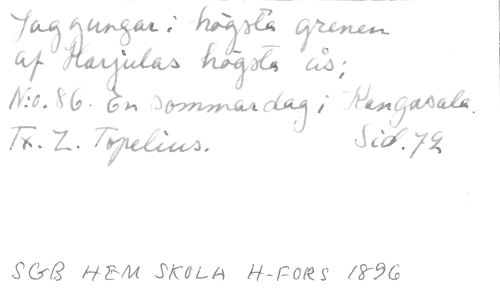 Jag gungar i högsta grenen
af Harjulas högsta ås;
N:o. 86. En sommardag i Kangasala.
Tx. Z. Topelius. Sid. 72
SGB HEM SKOLA H-FORS 1896